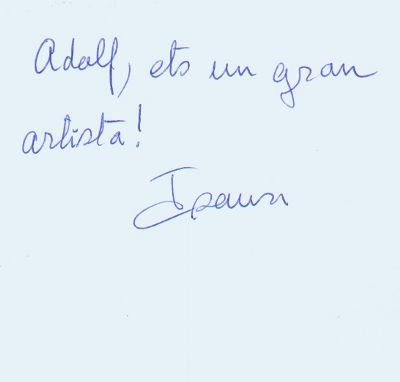 Adolf, ets un gran
artista!